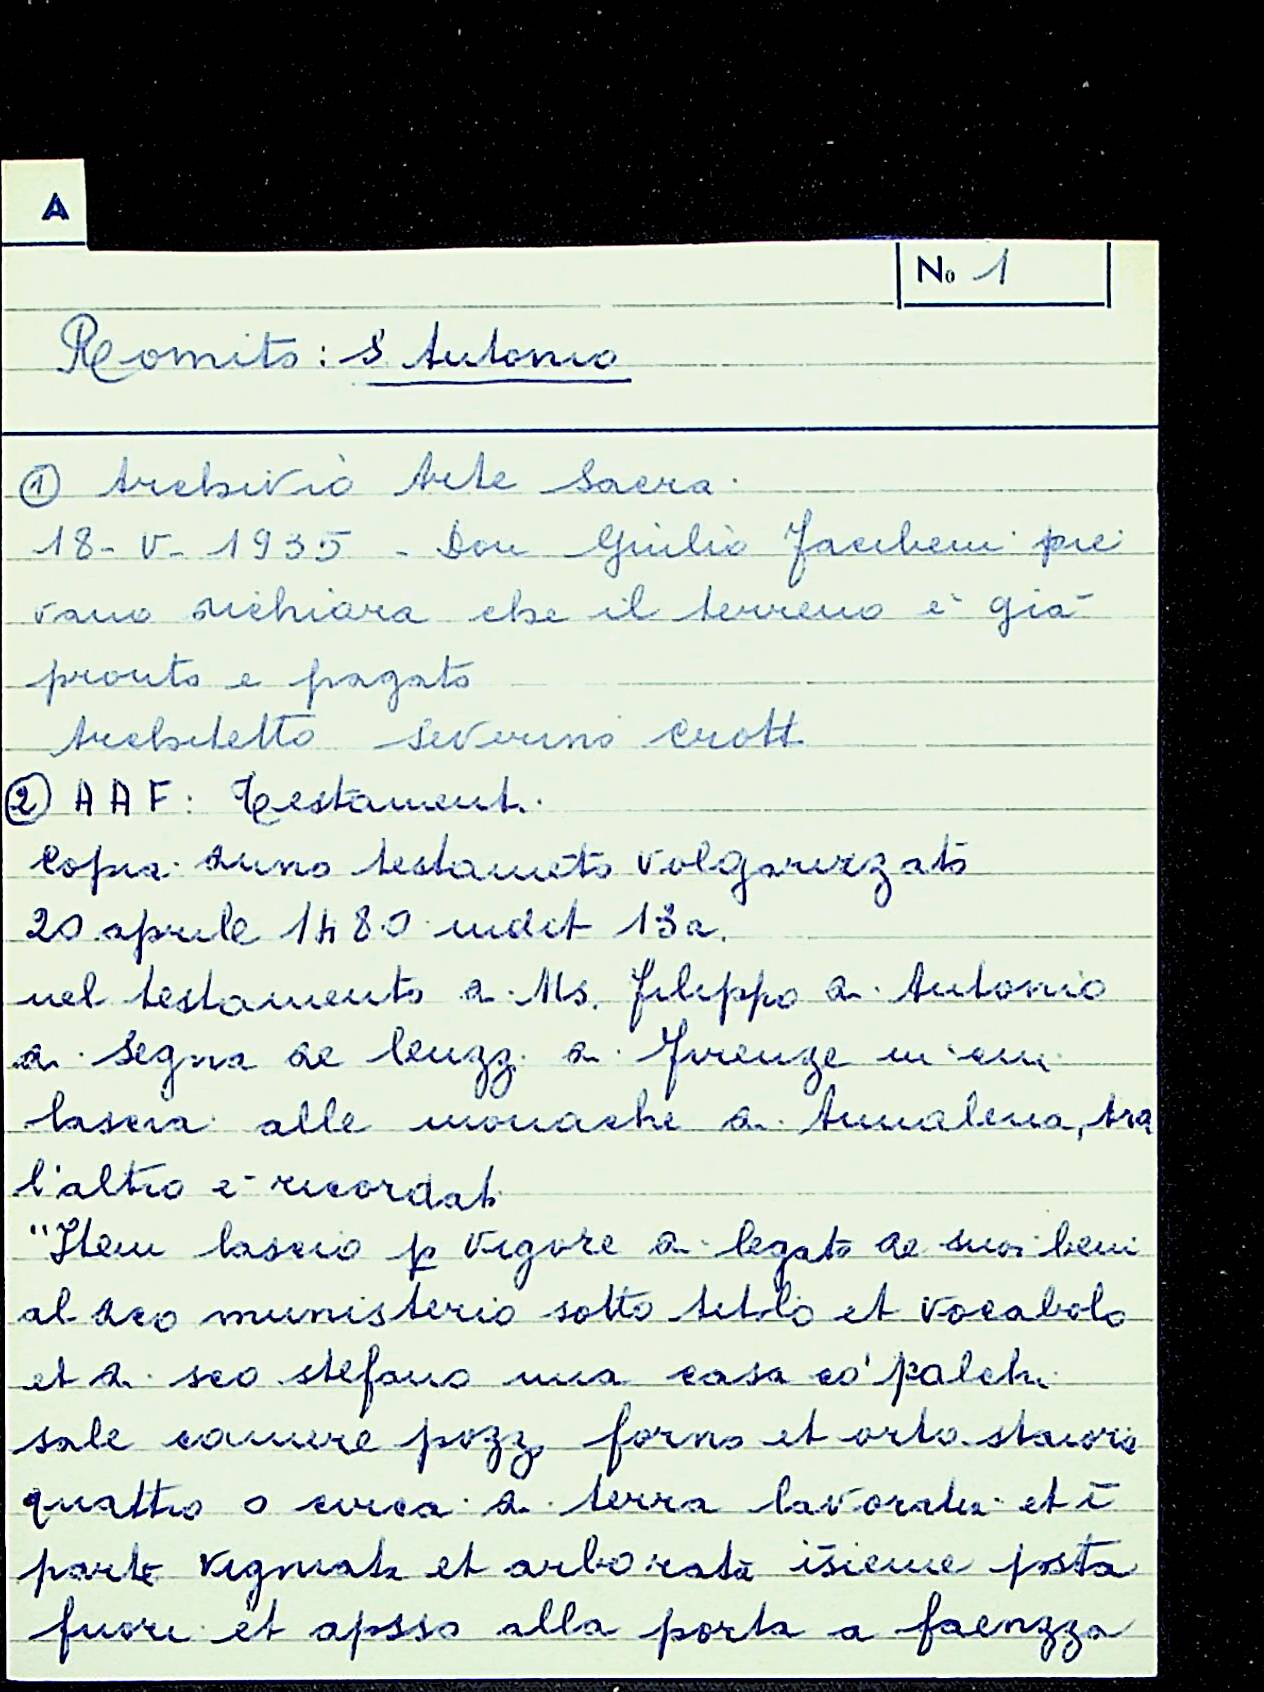 A
No 1
Romito: S Antonio
① Archivio Arte Sacra.
18-V-1935 - Don Giulio Facibeni pie
vano dichiara che il terreno è già
pronto e pagato
Architetto Severino Crott
② A A F: Testamenti.
Copia di uno testamēto volgarizzato
20 aprile 1480 indit 13a.
nel testamento di Ms. Filippo di Antonio
di Segna de lenzi di Firenze in cui
lascia alle monache di Annalena, tra
l'altro è ricordat
"Item lascio p vigore di legato de suoi beni
al dco munisterio sotto titolo et vocabolo
et di sco stefano una casa co' palchi
sale camere pozzo forno et orto staiora
quattro o circa di terra lavorata et ī
parte vignata et arborata īsieme posta
fuori et apsso alla porta a faenzza